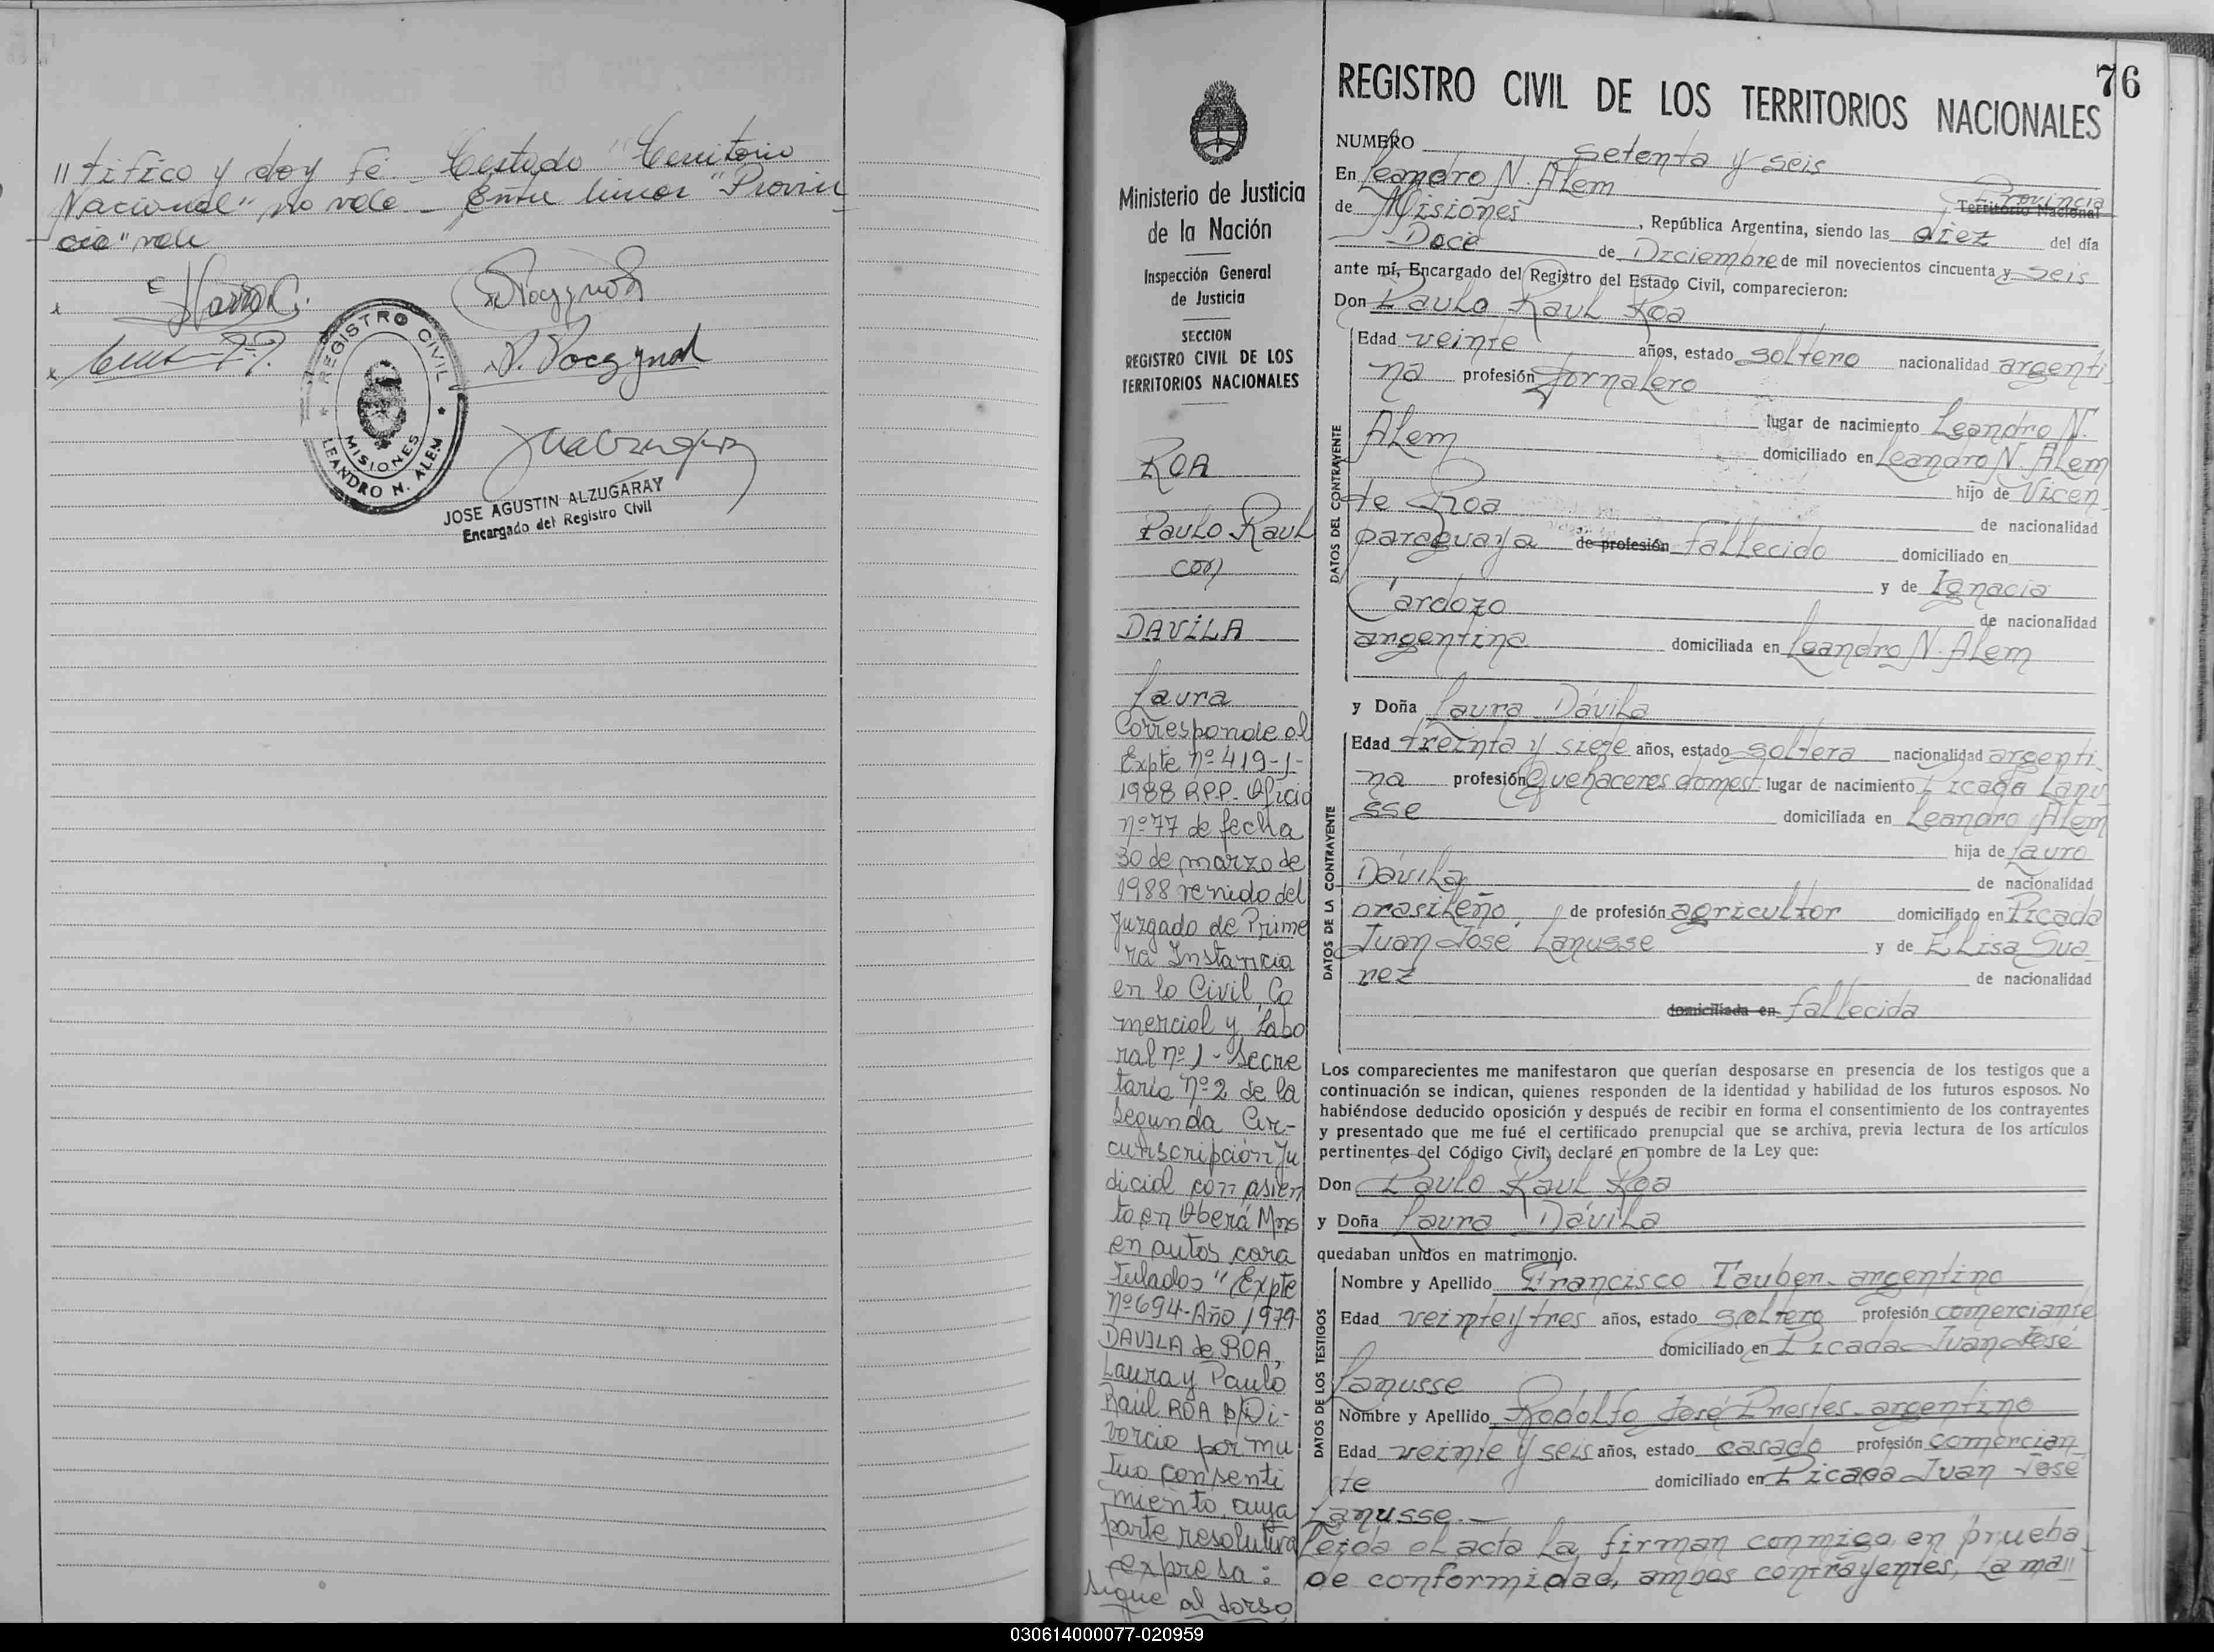 "tifico y doy fé.- Testado "Territorio
Nacional" no vale.- Entre lineas "Provin
cia" vale
REGISTRO CIVIL
MISIONES
LEANDRO N. ALEM
JOSE AGUSTIN ALZUGARAY
Encargado del Registro Civil
76
Ministerio de Justicia
de la Nación
Inspección General
de Justicia
SECCION
REGISTRO CIVIL DE LOS
TERRITORIOS NACIONALES
ROA
Paulo Raul
con
DAVILA
Laura
Corresponde al
Expte nº 419-J-
1988 RPP.- Oficio
nº 77 de fecha
30 de marzo de
1988 venido del
Juzgado de Prime
ra Instancia
en lo Civil, Co
mercial y Labo
ral nº 1 - Secre
taria nº 2 de la
Segunda Cir-
cunscripción Ju
dicial con asien
to en Oberá Mns
en autos cara
tulados "Expte
nº 694-Año 1979-
DAVILA de ROA,
Laura y Paulo
Raúl ROA s/Di-
vorcio por mu
tuo consenti
miento, cuya
parte resolutiva
expresa:
sigue al dorso
REGISTRO CIVIL DE LOS TERRITORIOS NACIONALES
NUMERO setenta y seis
En Leandro N. Alem
Provincia
Territorio Nacional
de Misiones, República Argentina, siendo las diez del día
Doce de Diciembre de mil novecientos cincuenta y seis
ante mí, Encargado del Registro del Estado Civil, comparecieron:
Don Paulo Raul Roa
DATOS DEL CONTRAYENTE
Edad veinte años, estado soltero nacionalidad argenti
na profesión Jornalero
lugar de nacimiento Leandro N.
Alem domiciliado en Leandro N. Alem
hijo de Vicen
te Roa de nacionalidad
paraguaya de profesión fallecido domiciliado en
y de Ignacia
Cardozo de nacionalidad
argentina domiciliada en Leandro N. Alem
y Doña Laura Dávila
DATOS DE LA CONTRAYENTE
Edad treinta y siete años, estado soltera nacionalidad argenti
na profesión Quehaceres domest. lugar de nacimiento Picada Lanu
sse domiciliada en Leandro Alem
hija de Lauro
Dávila de nacionalidad
brasileño, de profesión agricultor domiciliado en Picada
Juan José Lanusse y de Elisa Sua
rez de nacionalidad
domiciliada en fallecida
Los comparecientes me manifestaron que querían desposarse en presencia de los testigos que a
continuación se indican, quienes responden de la identidad y habilidad de los futuros esposos. No
habiéndose deducido oposición y después de recibir en forma el consentimiento de los contrayentes
y presentado que me fué el certificado prenupcial que se archiva, previa lectura de los artículos
pertinentes del Código Civil, declaré en nombre de la Ley que:
Don Paulo Raul Roa
y Doña Laura Dávila
quedaban unidos en matrimonio.
DATOS DE LOS TESTIGOS
Nombre y Apellido Francisco Tauber- argentino
Edad veinteytres años, estado soltero profesión comerciante
domiciliado en Picada Juan José
Lanusse
Nombre y Apellido Rodolfo José Prestes- argentino
Edad veinte y seis años, estado casado profesión comercian
te domiciliado en Picada Juan José
Lanusse.-
Leida el acta la firman conmigo en prueba
de conformidad, ambos contrayentes, la ma"
030614000077-020959